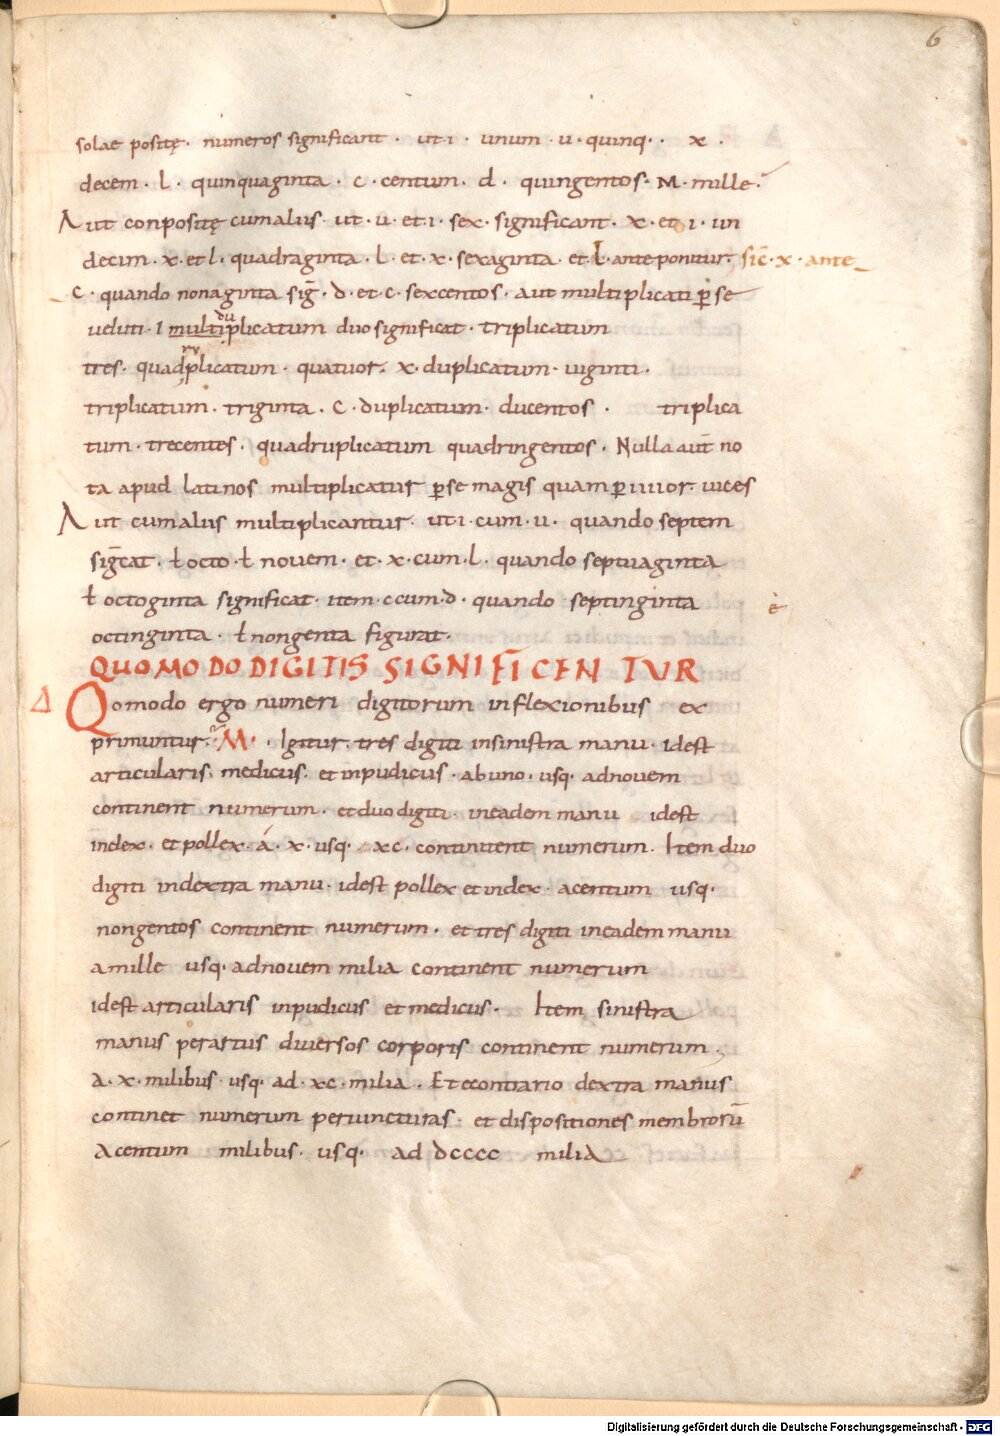 6
solae positę · numeros significant · ut · i · unum · u · quinq· · x ·
decem · l · quinquaginta · c · centum · d · quingentos · M · mille ·
Aut conpositę cum aliis · ut · u · et · i · sex · significant · x · et · i · un
decim · x · et l · quadraginta · l · et · x · sexaginta · et l · ante ponitur · sic̄ · x · ante
c · quando nonaginta sig̅ · d · et · c · sexcentos · aut multiplicati ꝑ se
ueluti · i multiplicatum duo significat · triplicatum
du
tres · quadplicatum · quatuor · x · duplicatum · uiginti ·
ru
triplicatum · triginta · c · duplicatum · ducentos · triplica
tum · trecentes · quadruplicatum quadringentos · Nulla aut̄ no
ta apud latinos multiplicatur ꝑ se magis quam ꝑ iiiior · uices
Aut cum aliis multiplicantur · ut · i · cum · u · quando septem
sig̅cat · ł octo · ł nouem · et · x · cum · l · quando septuaginta
ł octoginta significat · item · c cum · d · quando septinginta
octinginta · ł nongenta figurat ·
QUOMODO DIGITIS SIGNIFICENTUR
Δ Qomodo ergo numeri digitorum inflexionibus ex
primuntur · M · Igitur · tres digiti in sinistra manu · idest
articularis · medicus · et inpudicus · ab uno · usq· ad nouem
continent numerum · et duo digiti · in eadem manu idest
index · et pollex · á · x · usq· xc · continent numerum · Item duo
digiti in dextra manu · idest pollex et index · a centum usq·
nongentos continent numerum · et tres digiti in eadem manu
a mille usq· ad nouem milia continent numerum
idest articularis inpudicus et medicus · Item sinistra
manus per artus diuersos corporis continent numerum ·
a · x · milibus · usq· ad · xc · milia · Et econtrario dextra manus
continet numerum per iuncturas · et dispositiones membrorū
a centum milibus · usq· ad dcccc milia
Digitalisierung gefördert durch die Deutsche Forschungsgemeinschaft - DFG